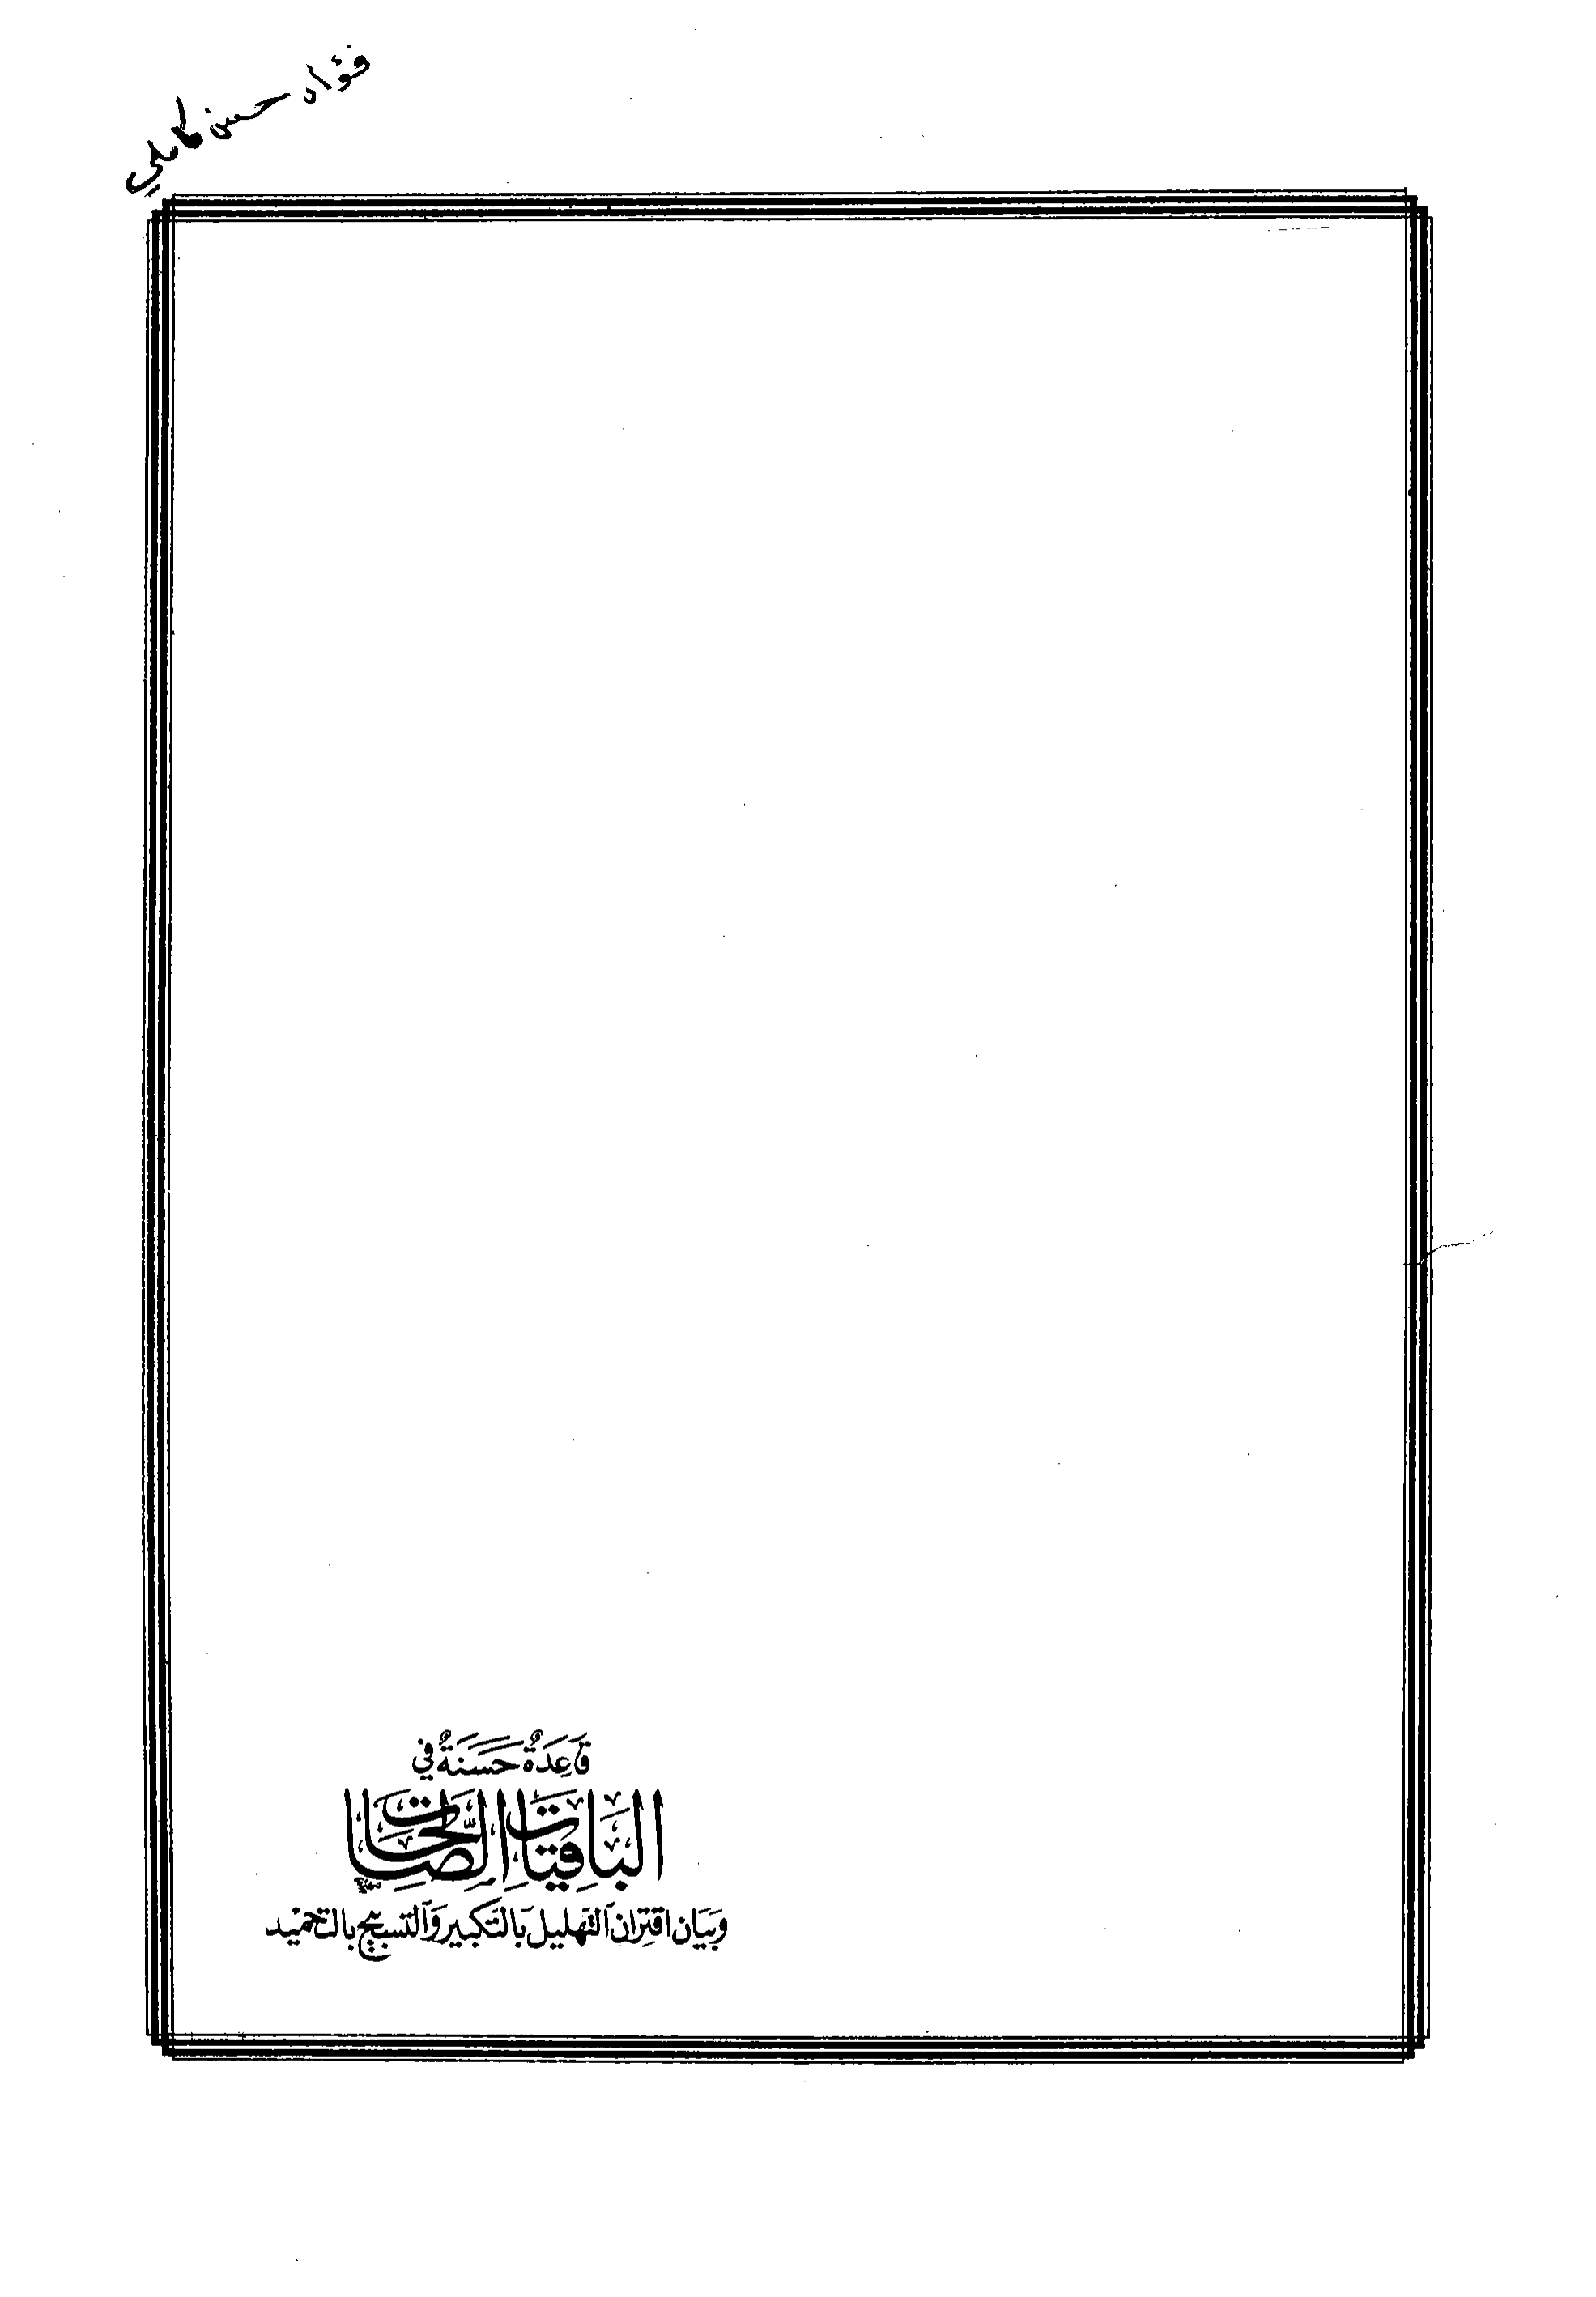 فؤاد حسن كاملي
قَاعِدَةٌ حَسَنَةٌ في
البَاقيَاتِ الصَّالحَات
وَبَيَان اقتِران التَّهليل بَالتَّكبير وَالتسبيح بالتحميد